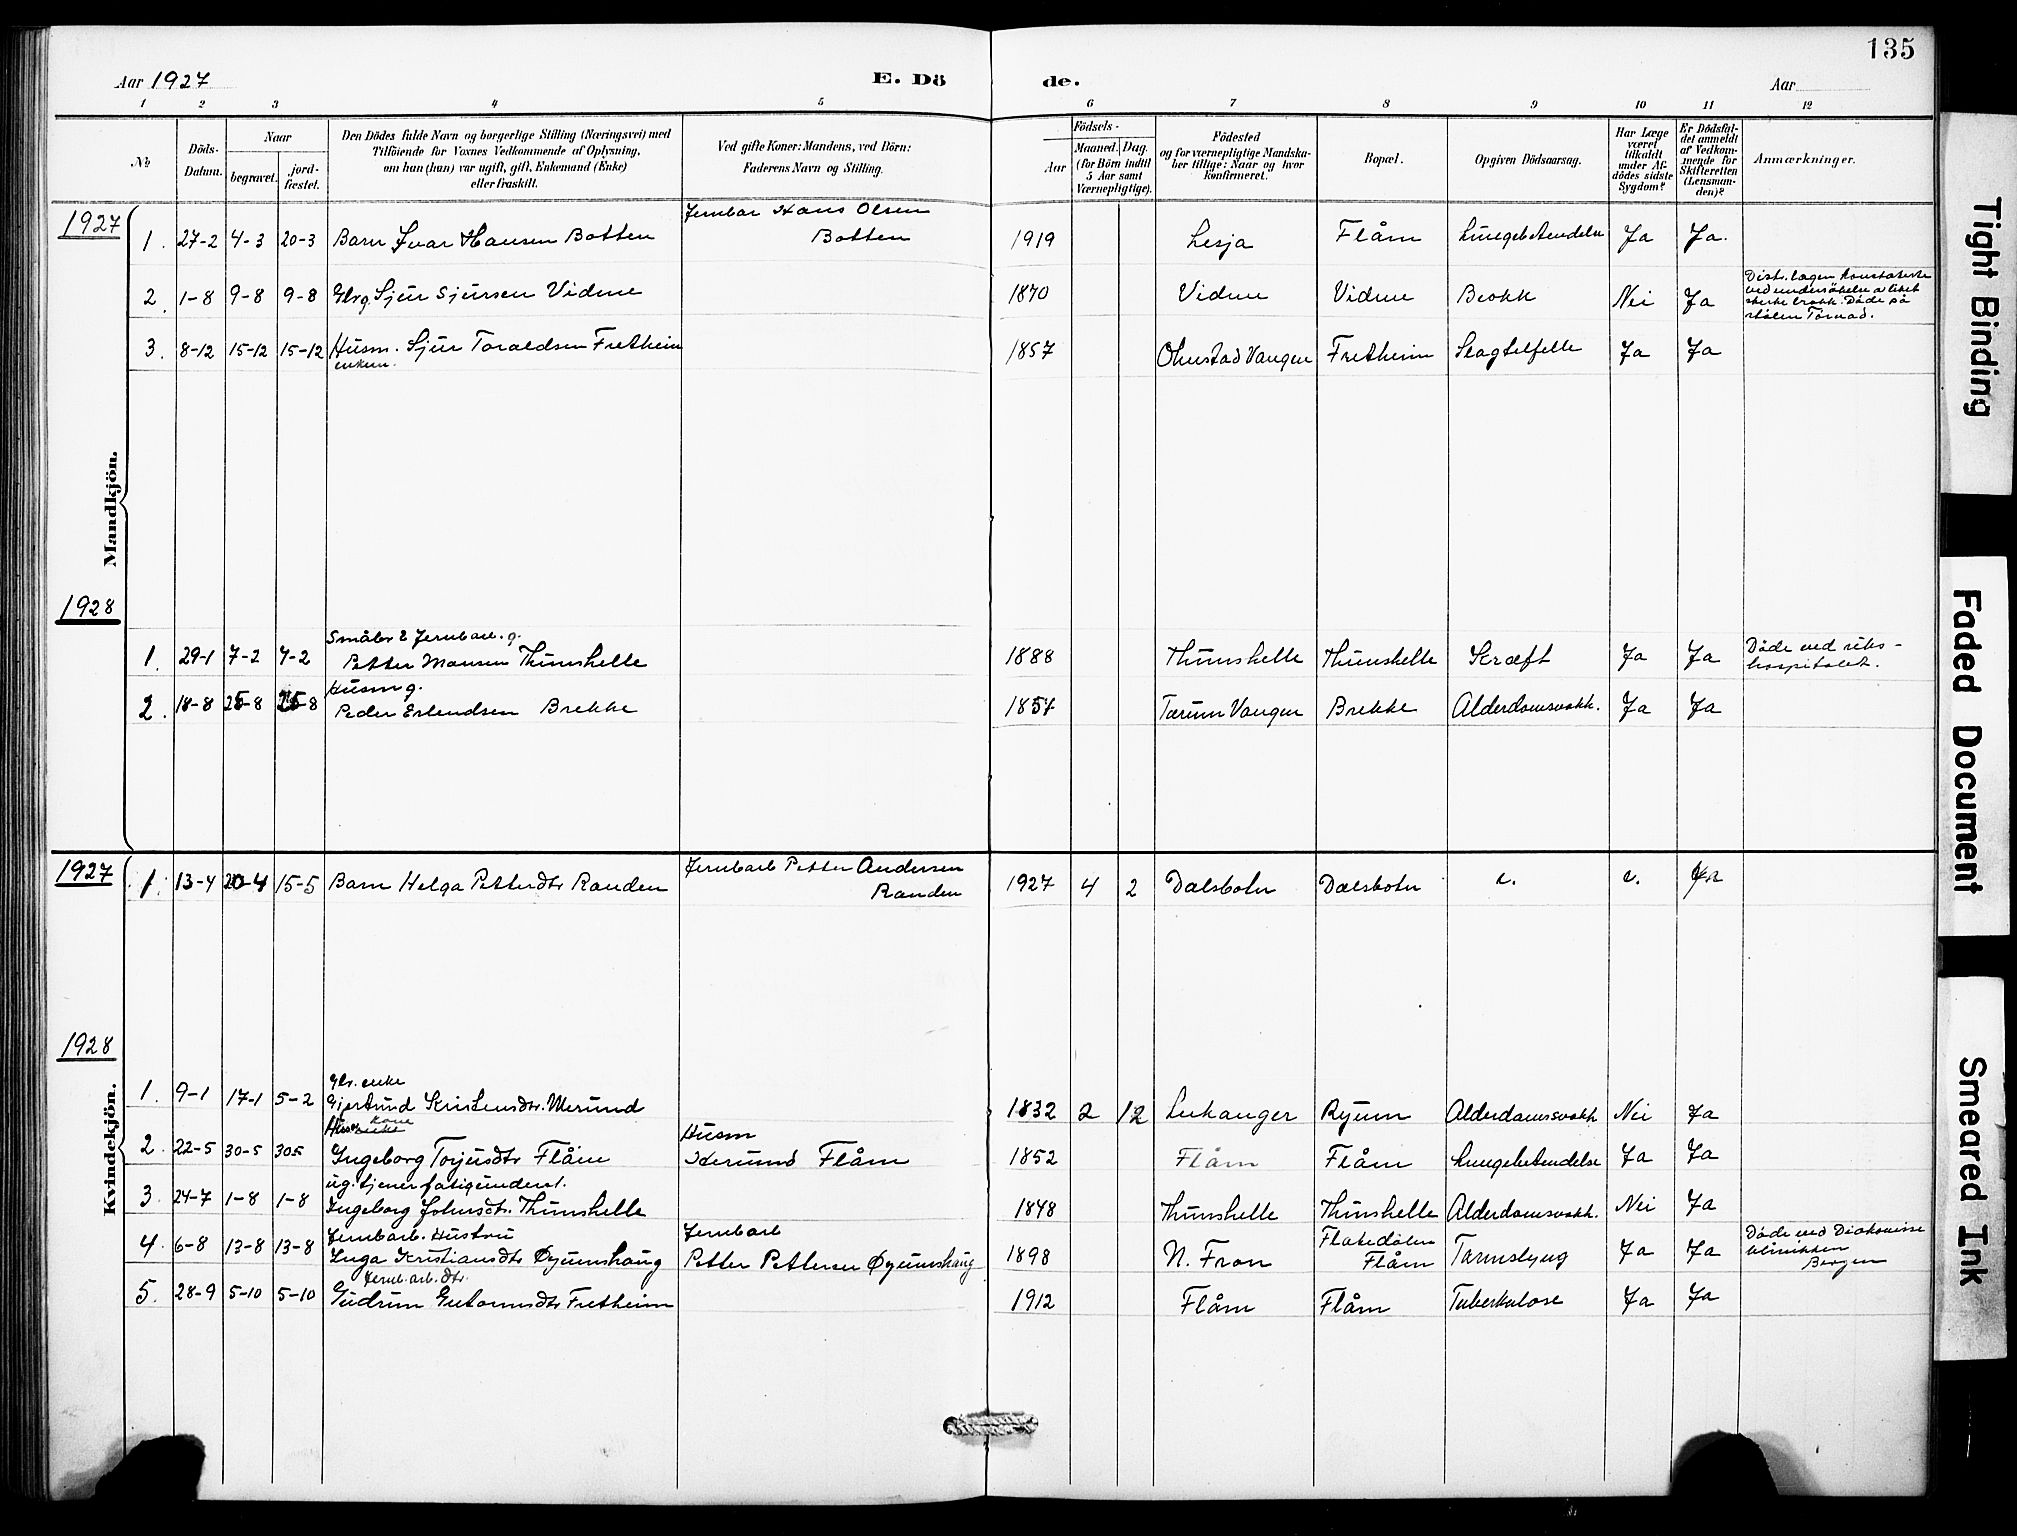 135
Aar 1927
E. Dö
de.
Aar
1 2 3 4 5 6 7 8 9 10 11 12
No
Döds-
Datum.
Naar
begravet.
jord-
fæstet.
Den Dödes fulde Navn og borgerlige Stilling (Næringsvei) med
Tilföiende for Voxnes Vedkommende af Oplysning,
om han (hun) var ugift, gift, Enkemand (Enke)
eller fraskilt.
Ved gifte Koner: Mandens, ved Börn:
Faderens Navn og Stilling.
Födsels-
Aar
Maaned. Dag.
(for Börn indtil
5 Aar samt
Værnepligtige).
Födested
og for værnepligtige Mandska-
ber tillige: Naar og hvor
konfirmeret.
Bopæl.
Opgiven Dödsaarsag.
Har Læge
været
tilkaldt
under Af-
dödes sidste
Sygdom?
Er Dödsfal-
det anmeldt
af Vedkom-
mende for
Skifteretten
(Lensman-
den)?
Anmærkninger.
Mandkjön.
1927
Jernbar Hans Olsen
1. 27-2 4-3 20-3 Barn Ivar Hansen Botten Botten 1919 Lesja Flåm Lungebetendelse Ja Ja.
2. 1-8 9-8 9-8 Gbrg. Sjur Sjursen Vidme 1870 Vidme Vidme Brokk Nei Ja
Distr. lægen konstaterte
ved undersökelse av liket
sterke brokk. Døde på
stölen Tarvad.
3. 8-12 15-12 15-12 Husm. Sjur Toraldsen Fretheim 1857 Ohnstad Vangen Fretheim Slagtilfelle Ja Ja
enkem.
1928
Småbr & Jernbarb. g.
1. 29-1 7-2 7-2 Petter Monsen Thunshelle 1888 Thunshelle Thunshelle Kræft Ja Ja
Døde ved riks-
hospitalet.
Husm g.
2. 18-8 25-8 25-8 Peder Erlendsen Brekke 1857 Tærum Vangen Brekke Alderdomssvakk. Ja Ja
Kvindekjön.
1927
Jernbarb Petter Andersen
1. 13-4 20-4 15-5 Barn Helga Petterdtr Randen Randen 1927 4 2 Dalsbotn Dalsbotn
1928
Gbr. enke
1. 9-1 17-1 5-2 Gjertrud Kristensdtr. Merund 1832 2 12 Leikanger Ryum Alderdomssvakk Nei Ja
Husm kone
Husm
2. 22-5 30-5 30-5 Ingeborg Torjusdtr Flåm Hermund Flåm 1852 Flåm Flåm Lungebetendelse Ja Ja
ug. tjener fatigunderst.
3. 24-7 1-8 1-8 Ingeborg Johnsdtr. Thunshelle 1848 Thunshelle Thunshelle Alderdomssvakk. Nei Ja
Jernbarb. Hustru
Jernbarb
4. 6-8 13-8 13-8 Inga Kristiansdtr Øyumshaug Petter Pettersen Øyumshaug 1898 N. Fron Flatsdølen Flåm Tarmslyng Ja Ja
Døde ved Diakonisse
klinikken
Bergen
Jernb.arb. dtr.
5. 28-9 5-10 5-10 Gudrun Gutormsdtr Fretheim 1912 Flåm Flåm Tuberkulose Ja Ja
Tight Binding
Faded Document
Smeared Ink